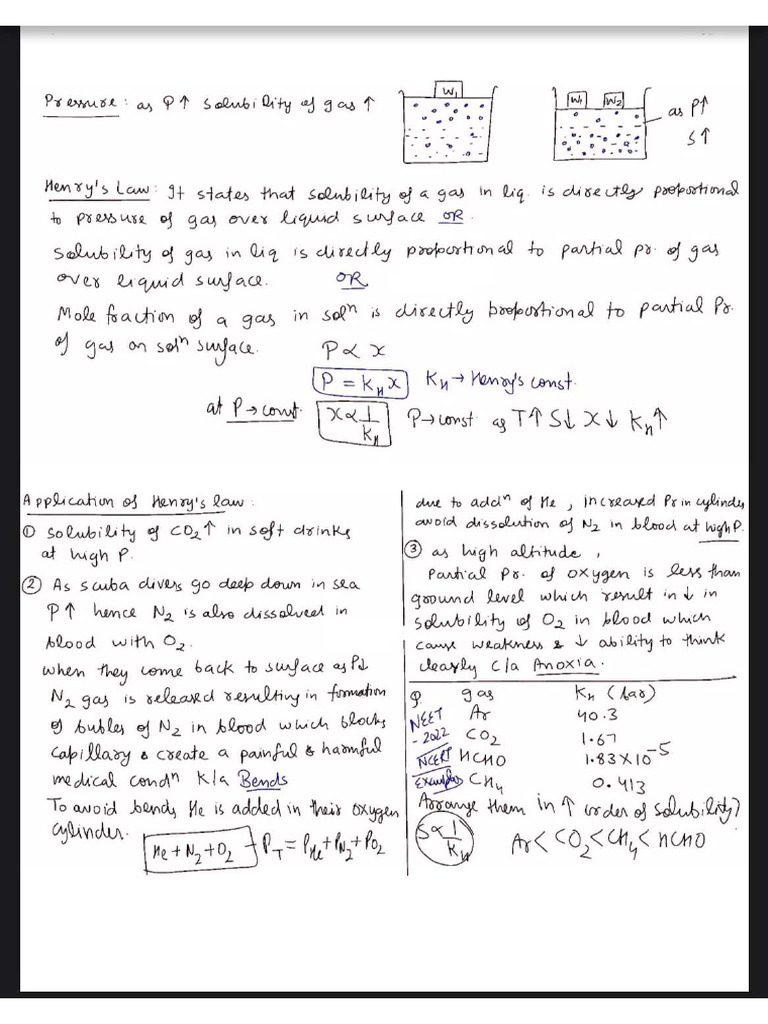 Pressure: as P↑ solubility of gas ↑
W1
W1 W2
as P↑
S↑
Henry's Law: It states that solubility of a gas in liq. is directly proportional
to pressure of gas over liquid surface OR
Solubility of gas in liq is directly proportional to partial pr. of gas
over liquid surface. OR
Mole fraction of a gas in solⁿ is directly proportional to partial Pr.
of gas on solⁿ surface. P ∝ x
P = K_H x K_H → Henry's const.
at P → const. x ∝ 1/K_H P → const as T↑ S↓ X↓ K_H↑
Application of Henry's law:
① Solubility of CO₂↑ in soft drinks
at high P.
② As scuba divers go deep down in sea
P↑ hence N₂ is also dissolved in
blood with O₂.
when they come back to surface as P↓
N₂ gas is released resulting in formation
of bubles of N₂ in blood which blocks
capillary & create a painful & harmful
medical condⁿ K/a Bends
To avoid bends He is added in their oxygen
cylinder.
He + N₂ + O₂ - P_T = P_He + P_N₂ + P_O₂
due to addⁿ of He, increased Pr in cylinder
avoid dissolution of N₂ in blood at high P.
③ as high altitude,
Partial Pr. of oxygen is less than
ground level which result in ↓ in
solubility of O₂ in blood which
cause weakness & ↓ ability to think
clearly c/a Anoxia.
Q. gas K_H (bar)
NEET Ar 40.3
-2022 CO₂ 1.67
NCERT HCHO 1.83×10⁻⁵
Exemplar CH₄ 0.413
Arrange them in ↑ order of solubility?
S ∝ 1/K_H Ar < CO₂ < CH₄ < HCHO